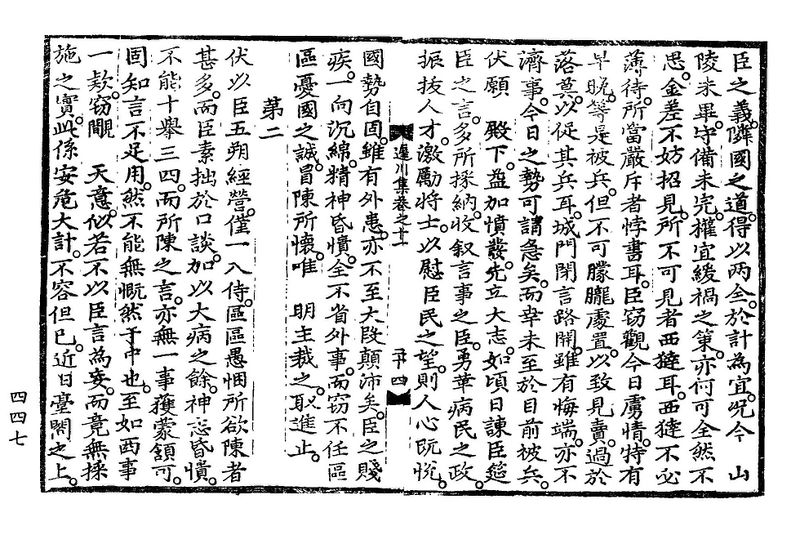 臣之義。隣國之道。得以两全。於計為宜。况今 山
陵未畢。守備未完。權宜緩禍之策。亦何可全然不
思。金差不妨招見。所不可見者西㺚耳。西㺚不必
薄待。所當嚴斥者悖書耳。臣窃觀今日虜情。特有
早晚。等是被兵。但不可朦朧處置。以致見賣。過於
落莫。以促其兵耳。城門閉言路開。雖有悔端。亦不
濟事。今日之勢可謂急矣。而幸未至於目前被兵。
伏願 殿下。益加憤發。先立大志。如頃日諫臣筵
臣之言。多所採納。收叙言事之臣。勇革病民之政。
振拔人才。激勵將士。以慰臣民之望。則人心旣悅。
遲川集卷之十一
二十四
國勢自固。雖有外患。亦不至大段顛沛矣。臣之賤
疾。一向沉綿。精神昏憒。全不省外事。而窃不任區
區憂國之誠。冒陳所懷。唯 明主裁之。取進止。
第二
伏以臣五朔經營。僅一入侍。區區愚悃所欲陳者
甚多。而臣素拙於口談。加以大病之餘。神志昏憒。
不能十舉三四。而所陳之言。亦無一事獲蒙頷可。
固知言不足用。然不能無慨然于中也。至如西事
一款。窃覸 天意。似若不以臣言為妄。而竟無採
施之實。此係安危大計。不容但已。近日臺閣之上。
四四七